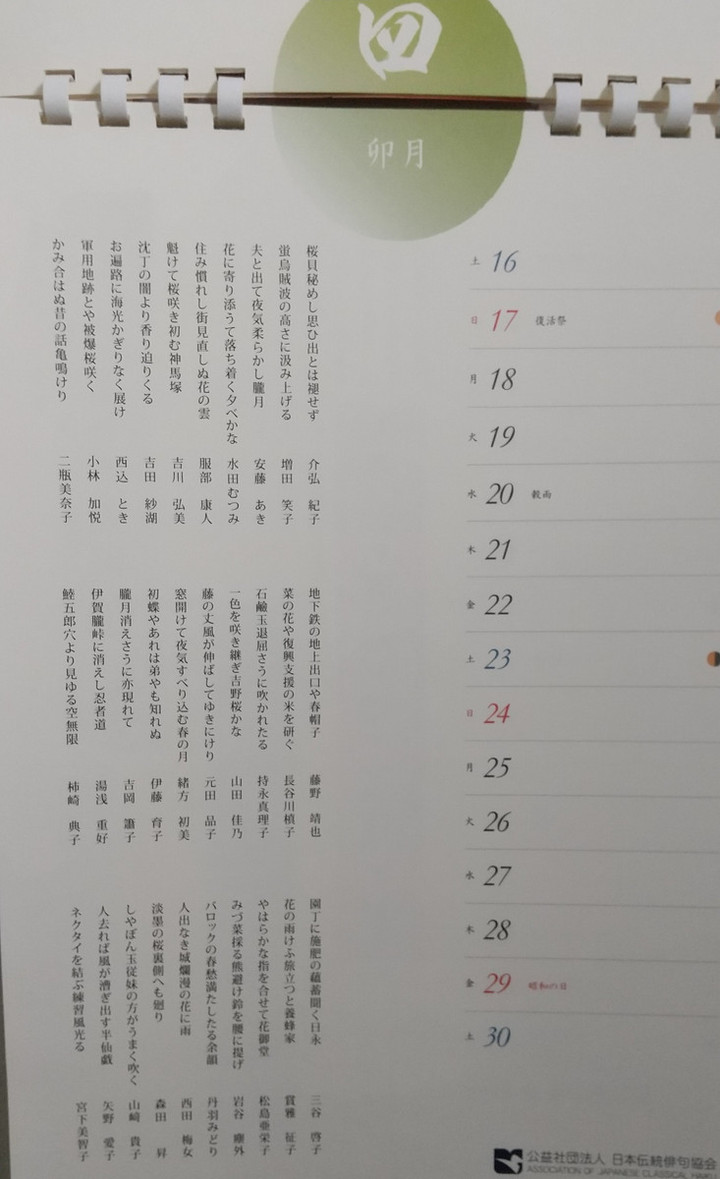 四
卯月
桜貝秘めし思ひ出とは褪せず 介弘 紀子
蛍烏賊波の高さに汲み上げる 増田 笑子
夫と出て夜気柔らかし朧月 安藤 あき
花に寄り添うて落ち着く夕べかな 水田むつみ
住み慣れし街見直しぬ花の雲 服部 康人
魁けて桜咲き初む神馬塚 吉川 弘美
沈丁の闇より香り迫りくる 吉田 紗湖
お遍路に海光かぎりなく展け 西込 とき
軍用地跡とや被爆桜咲く 小林 加悦
かみ合はぬ昔の話亀鳴けり 二瓶美奈子
地下鉄の地上出口や春帽子 藤野 靖也
菜の花や復興支援の米を研ぐ 長谷川槙子
石鹼玉退屈さうに吹かれたる 持永真理子
一色を咲き継ぎ吉野桜かな 山田 佳乃
藤の丈風が伸ばしてゆきにけり 元田 品子
窓開けて夜気すべり込む春の月 緒方 初美
初蝶やあれは弟やも知れぬ 伊藤 育子
朧月消えさうに亦現れて 吉岡 簫子
伊賀朧峠に消えし忍者道 湯浅 重好
鯥五郎穴より見ゆる空無限 柿崎 典子
園丁に施肥の蘊蓄聞く日永 三谷 啓子
花の雨けふ旅立つと養蜂家 賀雅 征子
やはらかな指を合せて花御堂 松島亜栄子
みづ菜採る熊避け鈴を腰に提げ 岩谷 塵外
バロックの春愁満たしたる余韻 丹羽みどり
人出なき城爛漫の花に雨 西田 梅女
淡墨の桜裏側へも廻り 森田 昇
しやぼん玉従妹の方がうまく吹く 山崎 貴子
人去れば風が漕ぎ出す半仙戯 矢野 愛子
ネクタイを結ぶ練習風光る 宮下美智子
土 16
日 17 復活祭
月 18
火 19
水 20 穀雨
木 21
金 22
土 23
日 24
月 25
火 26
水 27
木 28
金 29 昭和の日
土 30
公益社団法人 日本伝統俳句協会
ASSOCIATION OF JAPANESE CLASSICAL HAIKU